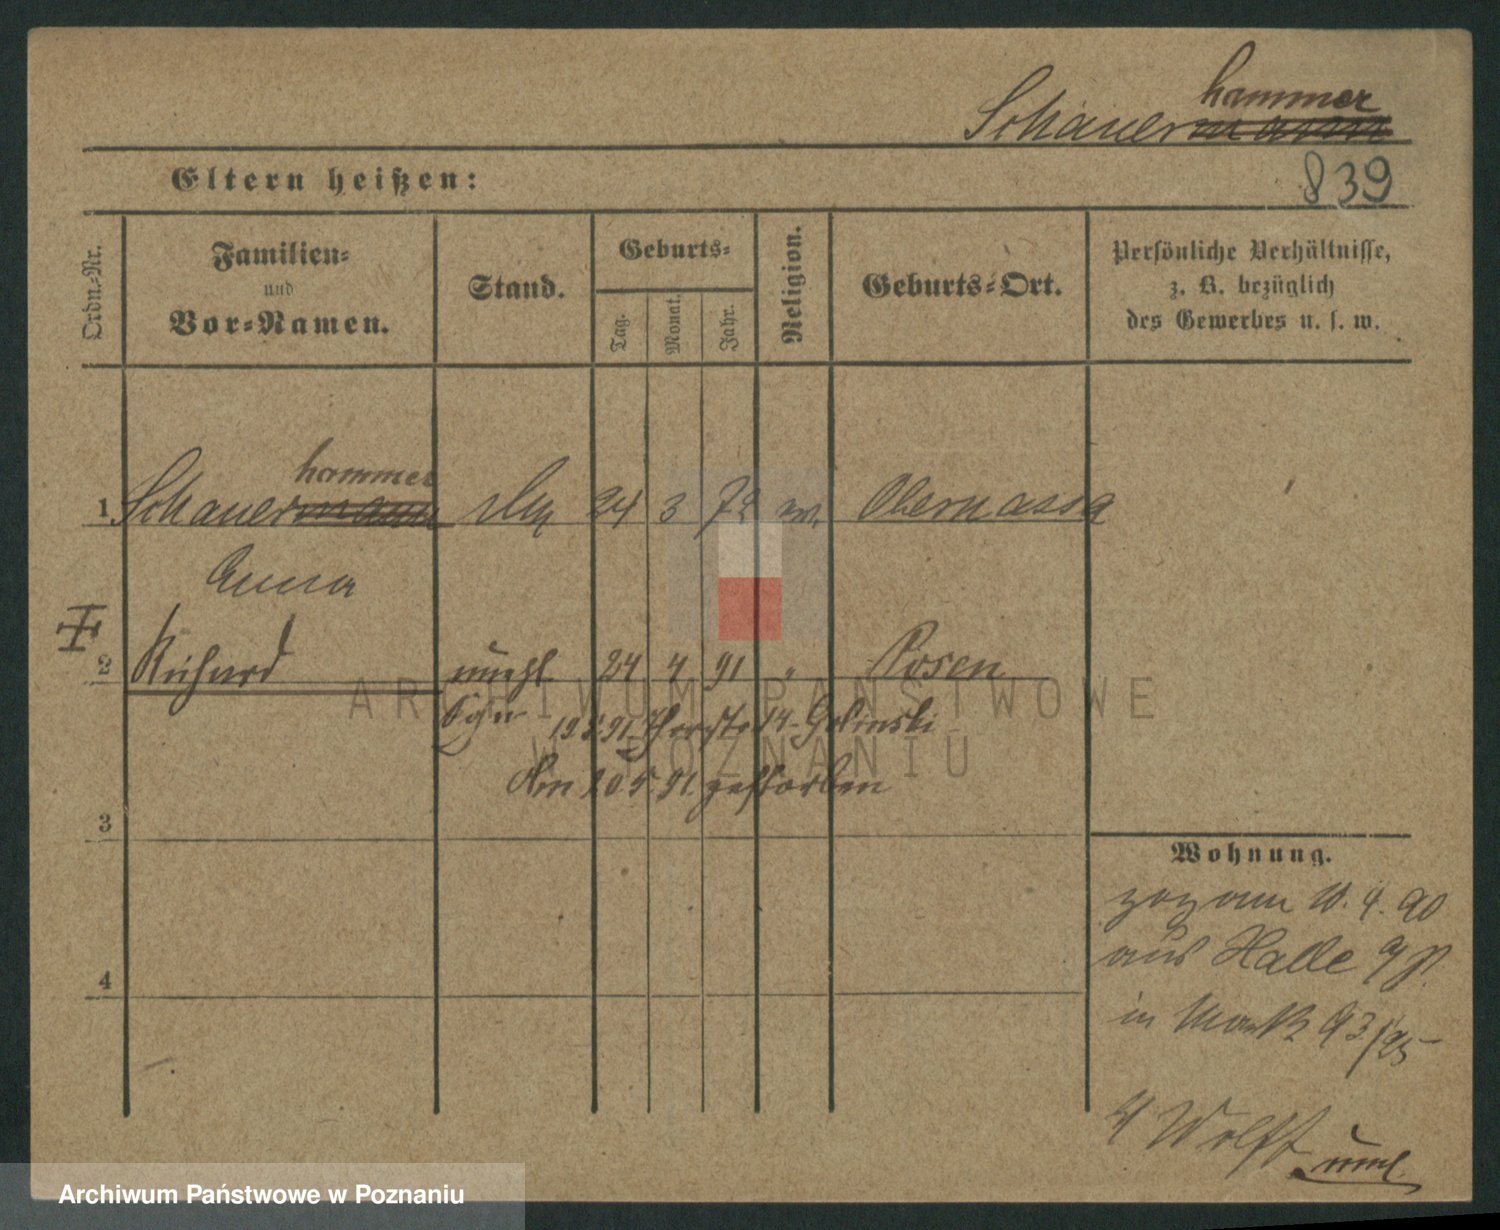 hammer
Schauermann
839
Eltern heißen:
Ordn.-Nr.
Familien-
und
Vor-Namen.
Stand.
Geburts-
Tag.
Monat.
Jahr.
Religion.
Geburts-Ort.
Persönliche Verhältnisse,
z. B. bezüglich
des Gewerbes u. s. w.
hammer
1 Schauermann 24 3 72 ev. Obermassa
Anna
2 Richard unehl 24 4 91 " Posen
19 5 91 14 Golinski
Am 20 5 91 gestorben
3
4
Wohnung.
zog am 10. 4. 90
aus Halle
in Markt 93/95
Wolff
ARCHIWUM PAŃSTWOWE
W POZNANIU
Archiwum Państwowe w Poznaniu